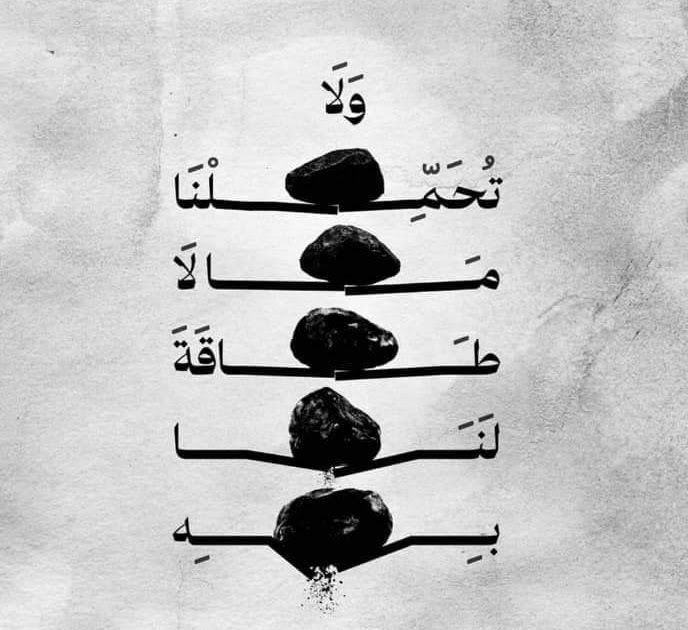 وَلَا
تُحَمِّلْنَا
مَا لَا
طَاقَةَ
لَنَا
بِهِ